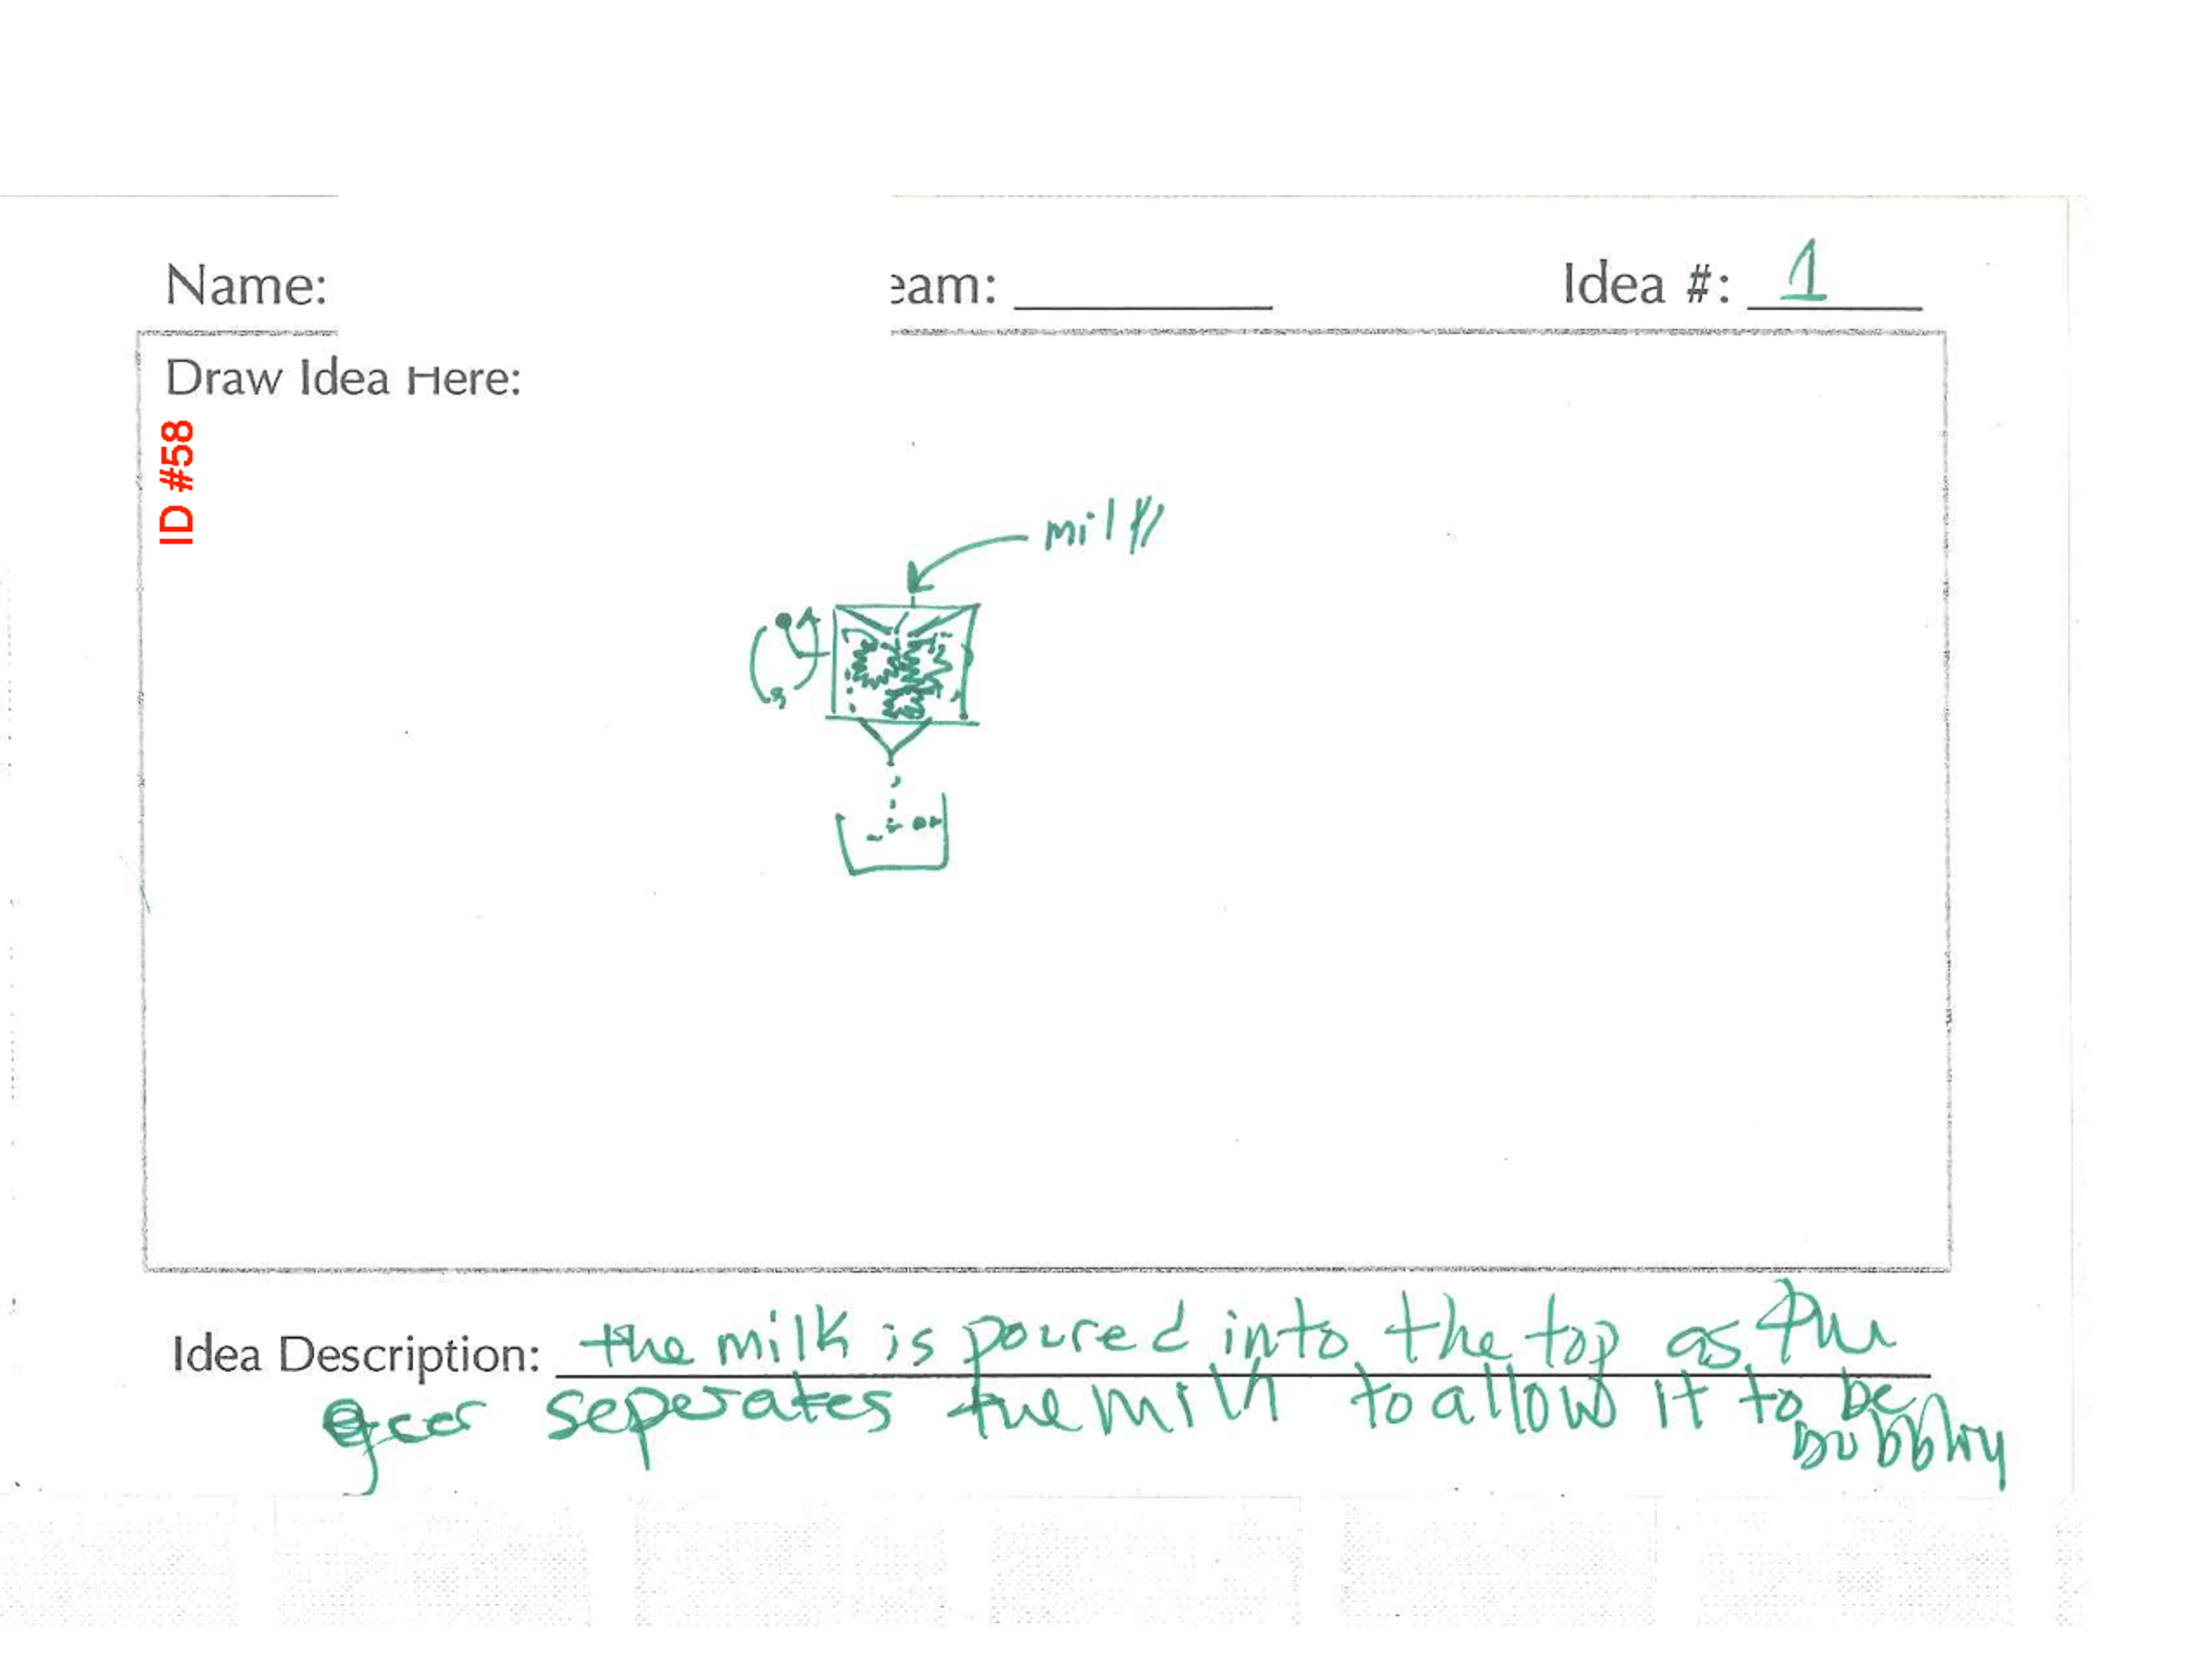 Name: eam: Idea #: 1
Draw Idea Here:
ID #58
milk
Idea Description: the milk is poured into the top as the
gear seperates the milk to allow it to be
bubbly